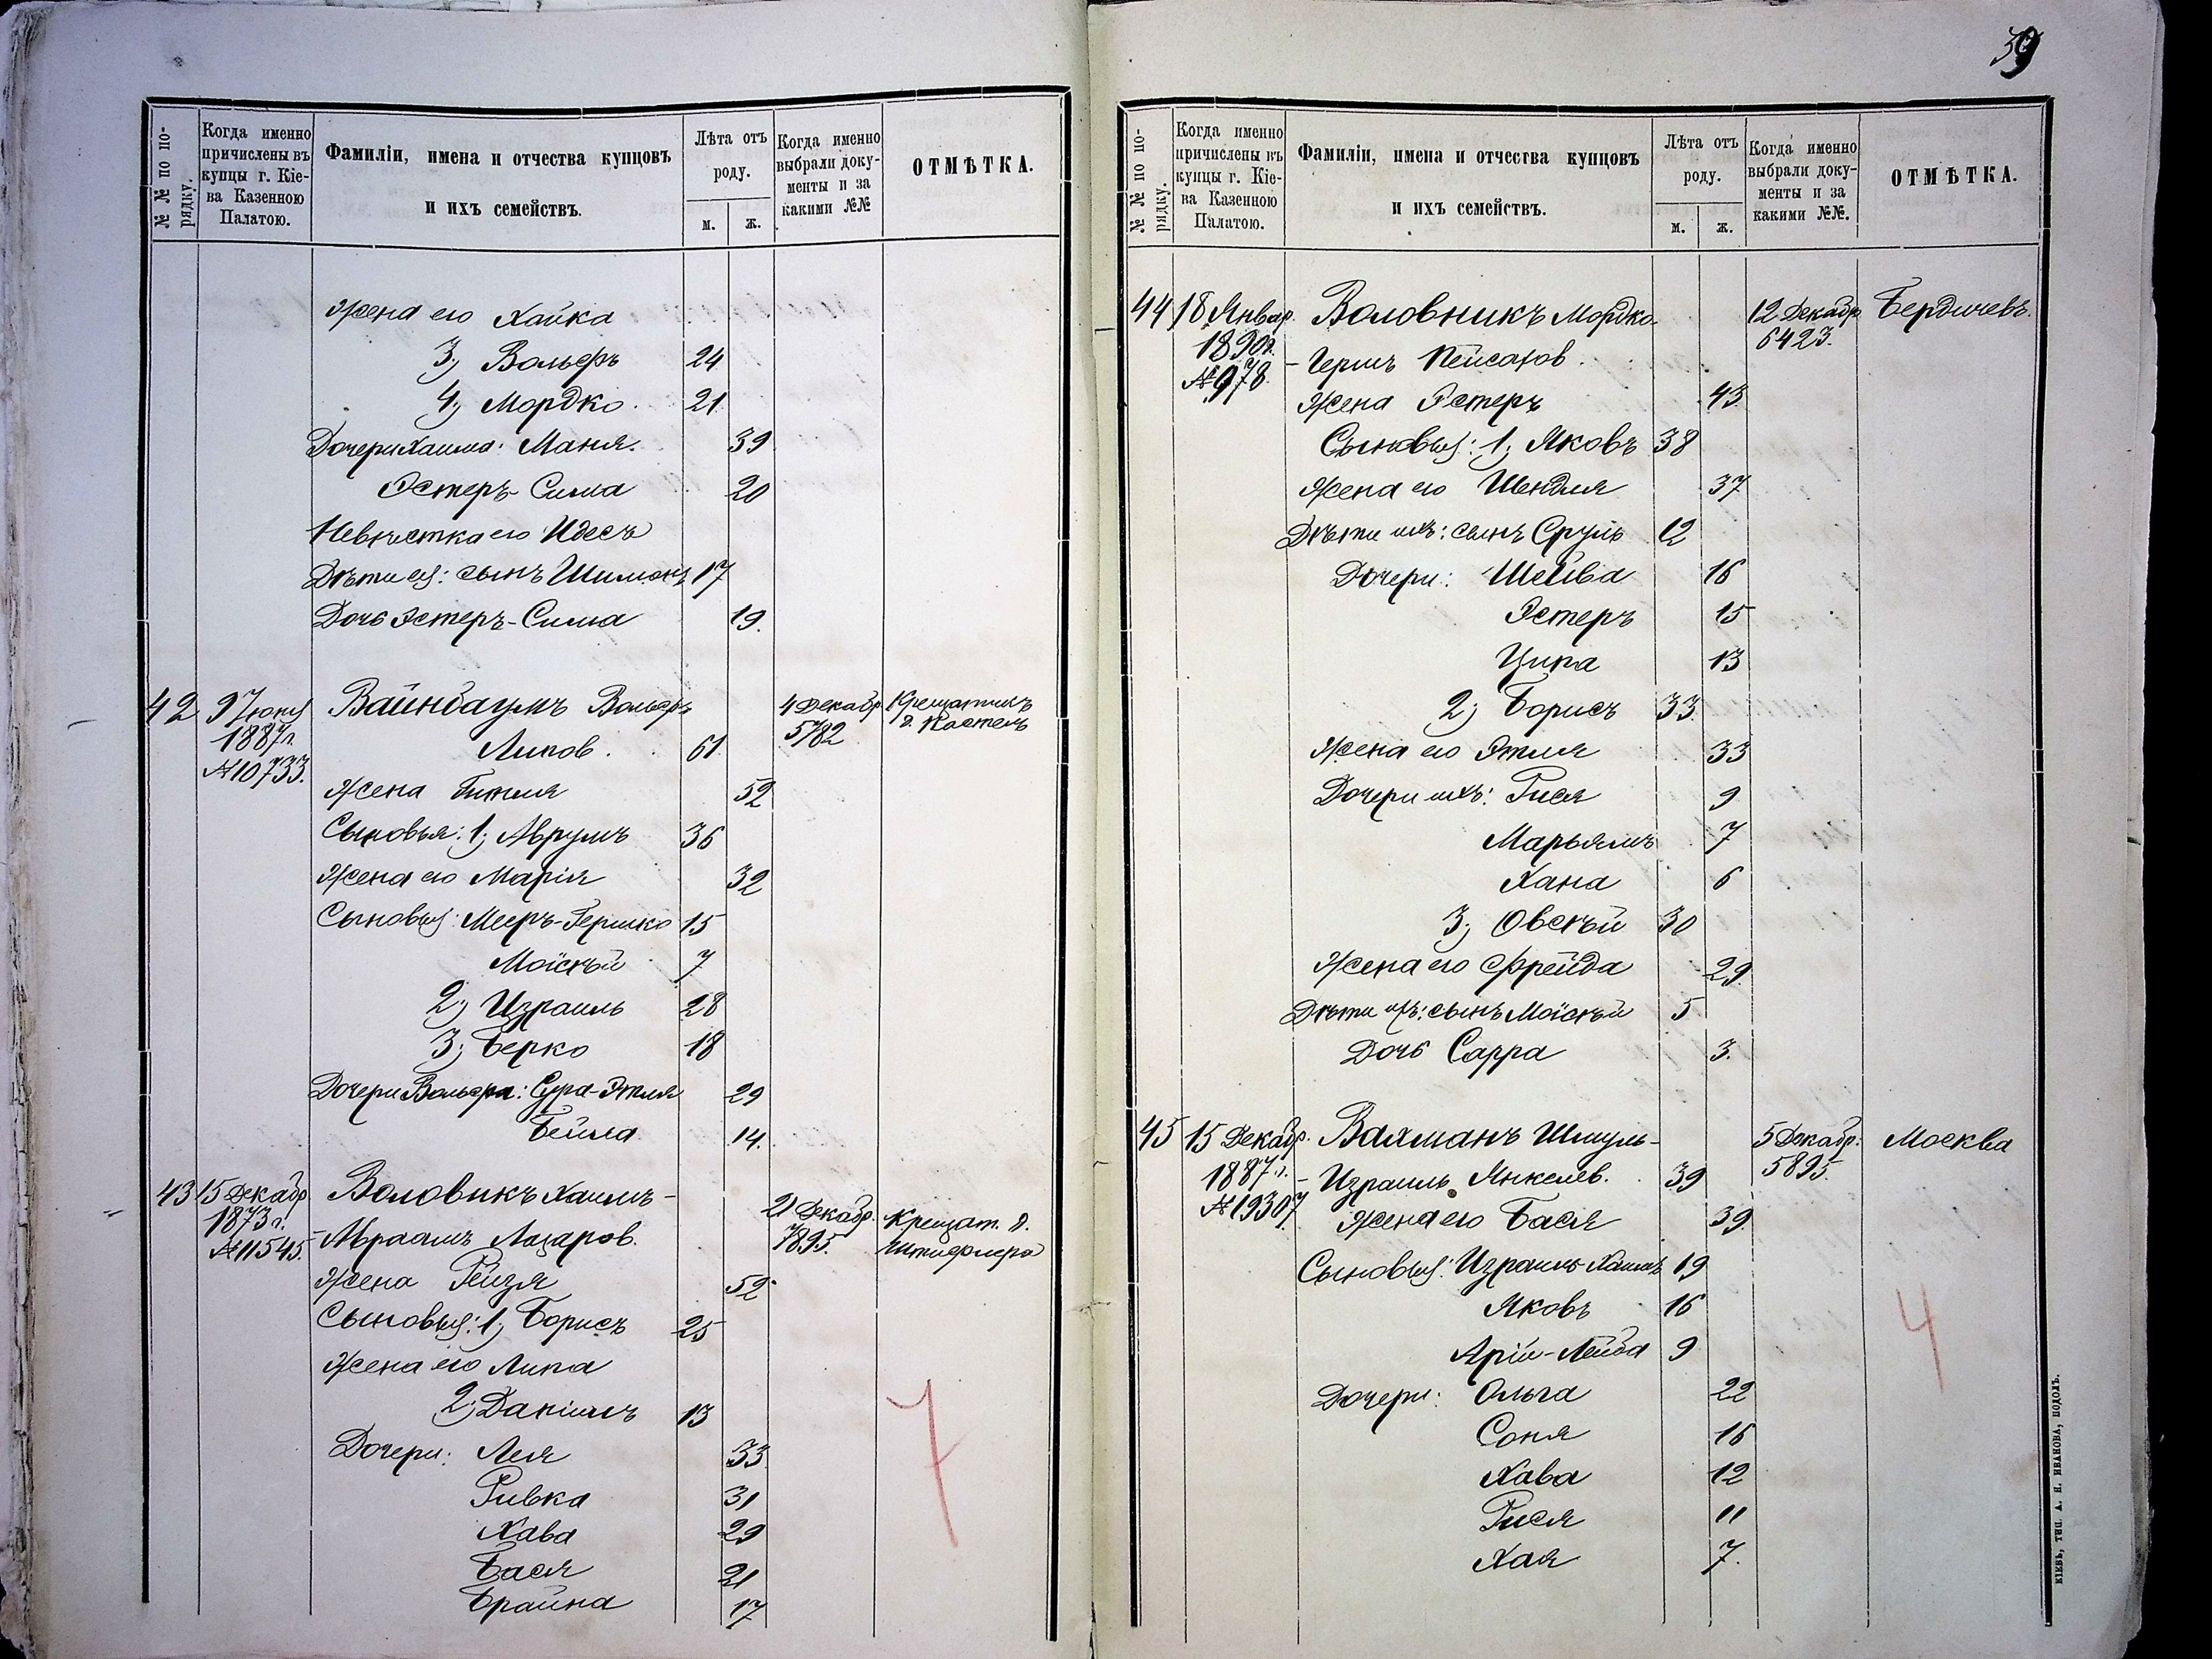 № № по по-
рядку.
Когда именно
причислены въ
купцы г. Кіе-
ва Казенною
Палатою.
Фамиліи, имена и отчества купцовъ
и ихъ семействъ.
Лѣта отъ
роду.
м.
ж.
Когда именно
выбрали доку-
менты и за
какими №№
ОТМѢТКА.
Жена его Хайка
3, Вольфъ 24
4, Мордко 21
Дочери Хаима: Маня. 39
Эстеръ-Сима 20
Невѣстка его Идесъ
Дѣти ея: сынъ Шимонъ 17
Дочь Эстеръ-Сима 19.
42 9 Іюня Вайнбаумъ Вольфъ 4 Декабр Крещатикъ
1887 г. Липов. 61 5782 д. Кастель
№ 10733.
Жена Гитля 52
Сыновья: 1, Аврумъ 36
Жена его Марія 32
Сыновья: Мееръ-Гершко 15
Моісѣй 7
2, Израиль 28
3, Берко 18
Дочери Вольфа: Сура-Этля 29
Бейла 14.
43 15 Декабр Воловикъ Хаимъ- 21 Декабр. Крещат. д.
1873 г. -Авраамъ Лазаров. 7895. Штифлера
№ 11545.
Жена Рейзя 52
Сыновья: 1, Борисъ 25
Жена его Липа
2, Даніилъ 13
Дочери: Лея 33
Ривка 31
Хава 29
Бася 21
Брайна 17
7
39
№ № по по-
рядку.
Когда именно
причислены въ
купцы г. Кіе-
ва Казенною
Палатою.
Фамиліи, имена и отчества купцовъ
и ихъ семействъ.
Лѣта отъ
роду.
м.
ж.
Когда именно
выбрали доку-
менты и за
какими №№.
ОТМѢТКА.
44 18 Январ. Воловникъ Мордко- 12 Декабр Бердичевъ.
1890 г. -Гершъ Пейсахов. 6423.
№ 978.
Жена Эстеръ 43
Сыновья: 1, Яковъ 38
Жена его Шендля 37
Дѣти ихъ: сынъ Сруль 12
Дочери: Шейва 16
Эстеръ 15
Ципа 13
2, Борисъ 33.
Жена его Этля 33
Дочери ихъ: Рися 9
Марьямъ 7
Хана 6
3, Овсѣй 30
Жена его Фрейда 29.
Дѣти ихъ: сынъ Моісѣй 5
Дочь Сарра 3.
45 15 Декабр. Вахманъ Шмуль- 5 Декабр. Москва
1887 г. -Израиль Янкелев. 39 5895.
№ 19307
Жена его Бася 39.
Сыновья: Израиль-Хаимъ 19
Яковъ 16
Арій-Лейба 9
Дочери: Ольга 22
Соня 16
Хава 12
Рися 11
Хая 7.
4
КІЕВЪ, ТИП. А. Н. ИВАНОВА, ПОДОЛЪ.